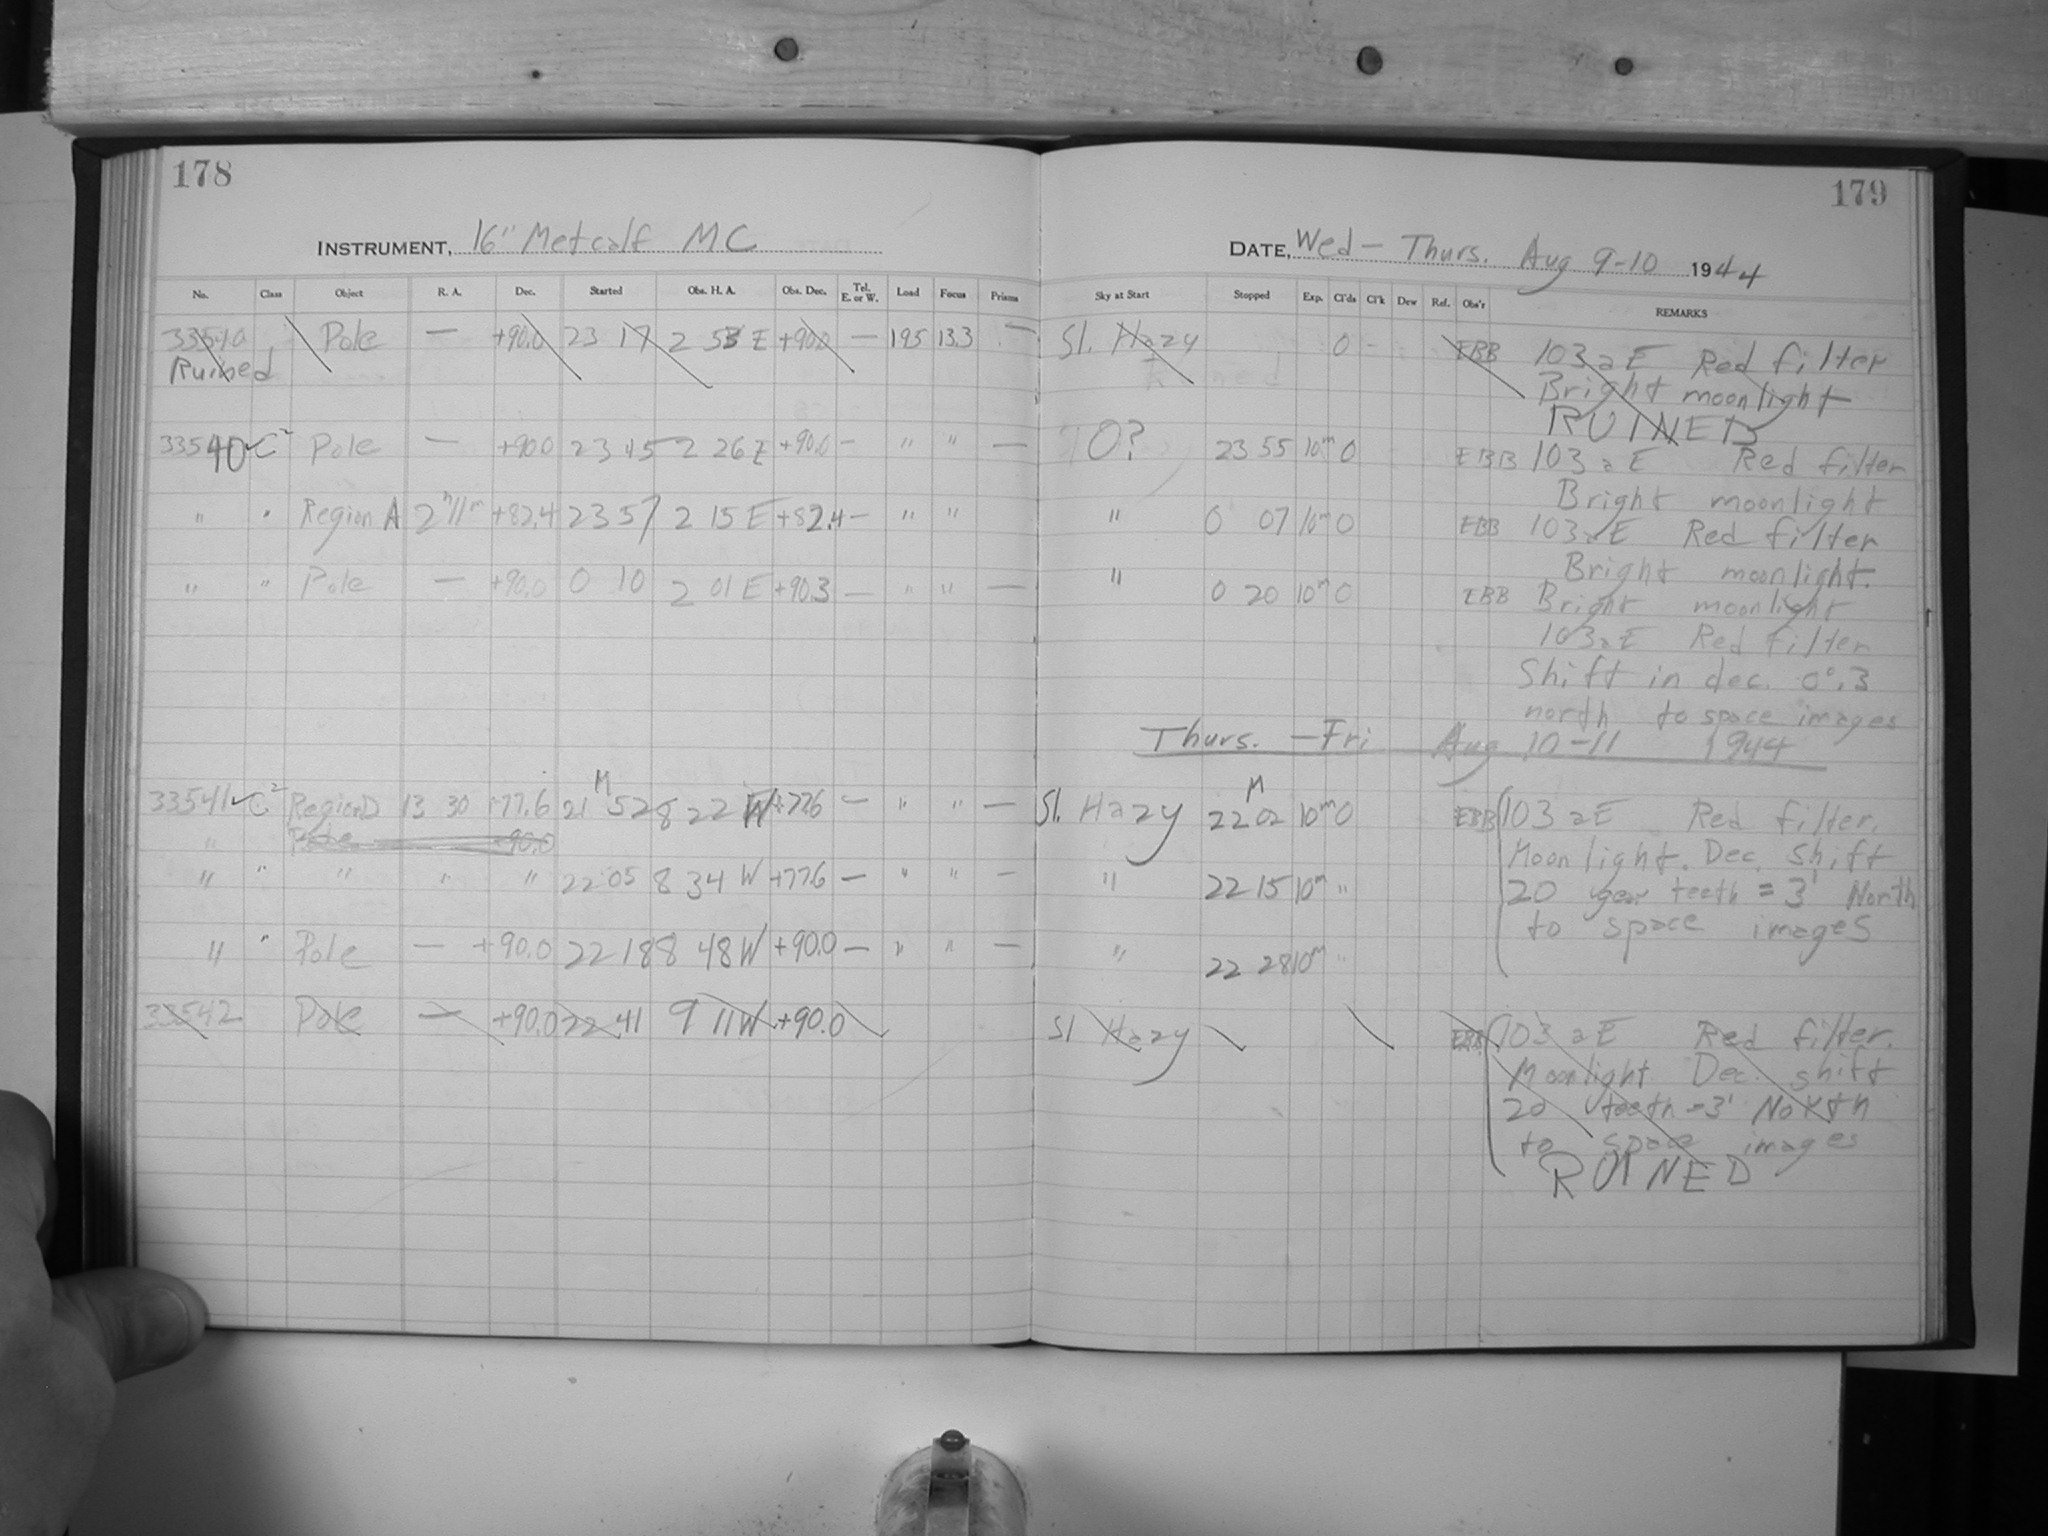 178
179
INSTRUMENT, 16" Metcalf MC
DATE, Wed - Thurs. Aug 9-10 1944
No. Class Object R. A. Dec. Started Obs. H. A. Obs. Dec. Tel. E. or W. Load Focus Prisms Sky at Start Stopped Exp. Cl'ds Cl'k Dew Ref. Obs'r REMARKS
33540 Pole — +90.0 23 17 2 53 E +90.0 — 195 13.3 — Sl. Hazy 0 - EBB 103aE Red filter
Ruined Bright moonlight
RUINED
33540 ✓ C² Pole — +90.0 23 45 2 26 E +90.0 — " " — 0? 23 55 10m 0 EBB 103aE Red filter
Bright moonlight
" " Region A 2h 11m +82.4 23 57 2 15 E +82.4 — " " " 0 07 10m 0 EBB 103aE Red filter
Bright moonlight.
" " Pole — +90.0 0 10 2 01 E +90.3 — " " — " 0 20 10m 0 EBB Bright moonlight
103aE Red filter
Shift in dec. 0°.3
north to space images
Thurs. - Fri Aug 10-11 1944
33541 ✓ C² Region D 13 30 +77.6 21 M 52 8 22 W +77.6 — " " — Sl. Hazy 22 M 02 10m 0 EBB 103aE Red filter.
" Pole — +90.0 Moonlight. Dec. shift
" " " " " 22 05 8 34 W +77.6 — " " — " 22 15 10m " 20 gear teeth = 3' North
to space images
" " Pole — +90.0 22 18 8 48 W +90.0 — " " — " 22 28 10m "
33542 Pole — +90.0 22 41 9 11 W +90.0 Sl Hazy EBB 103aE Red filter.
Moonlight Dec. shift
20 teeth = 3' North
to space images
RUINED